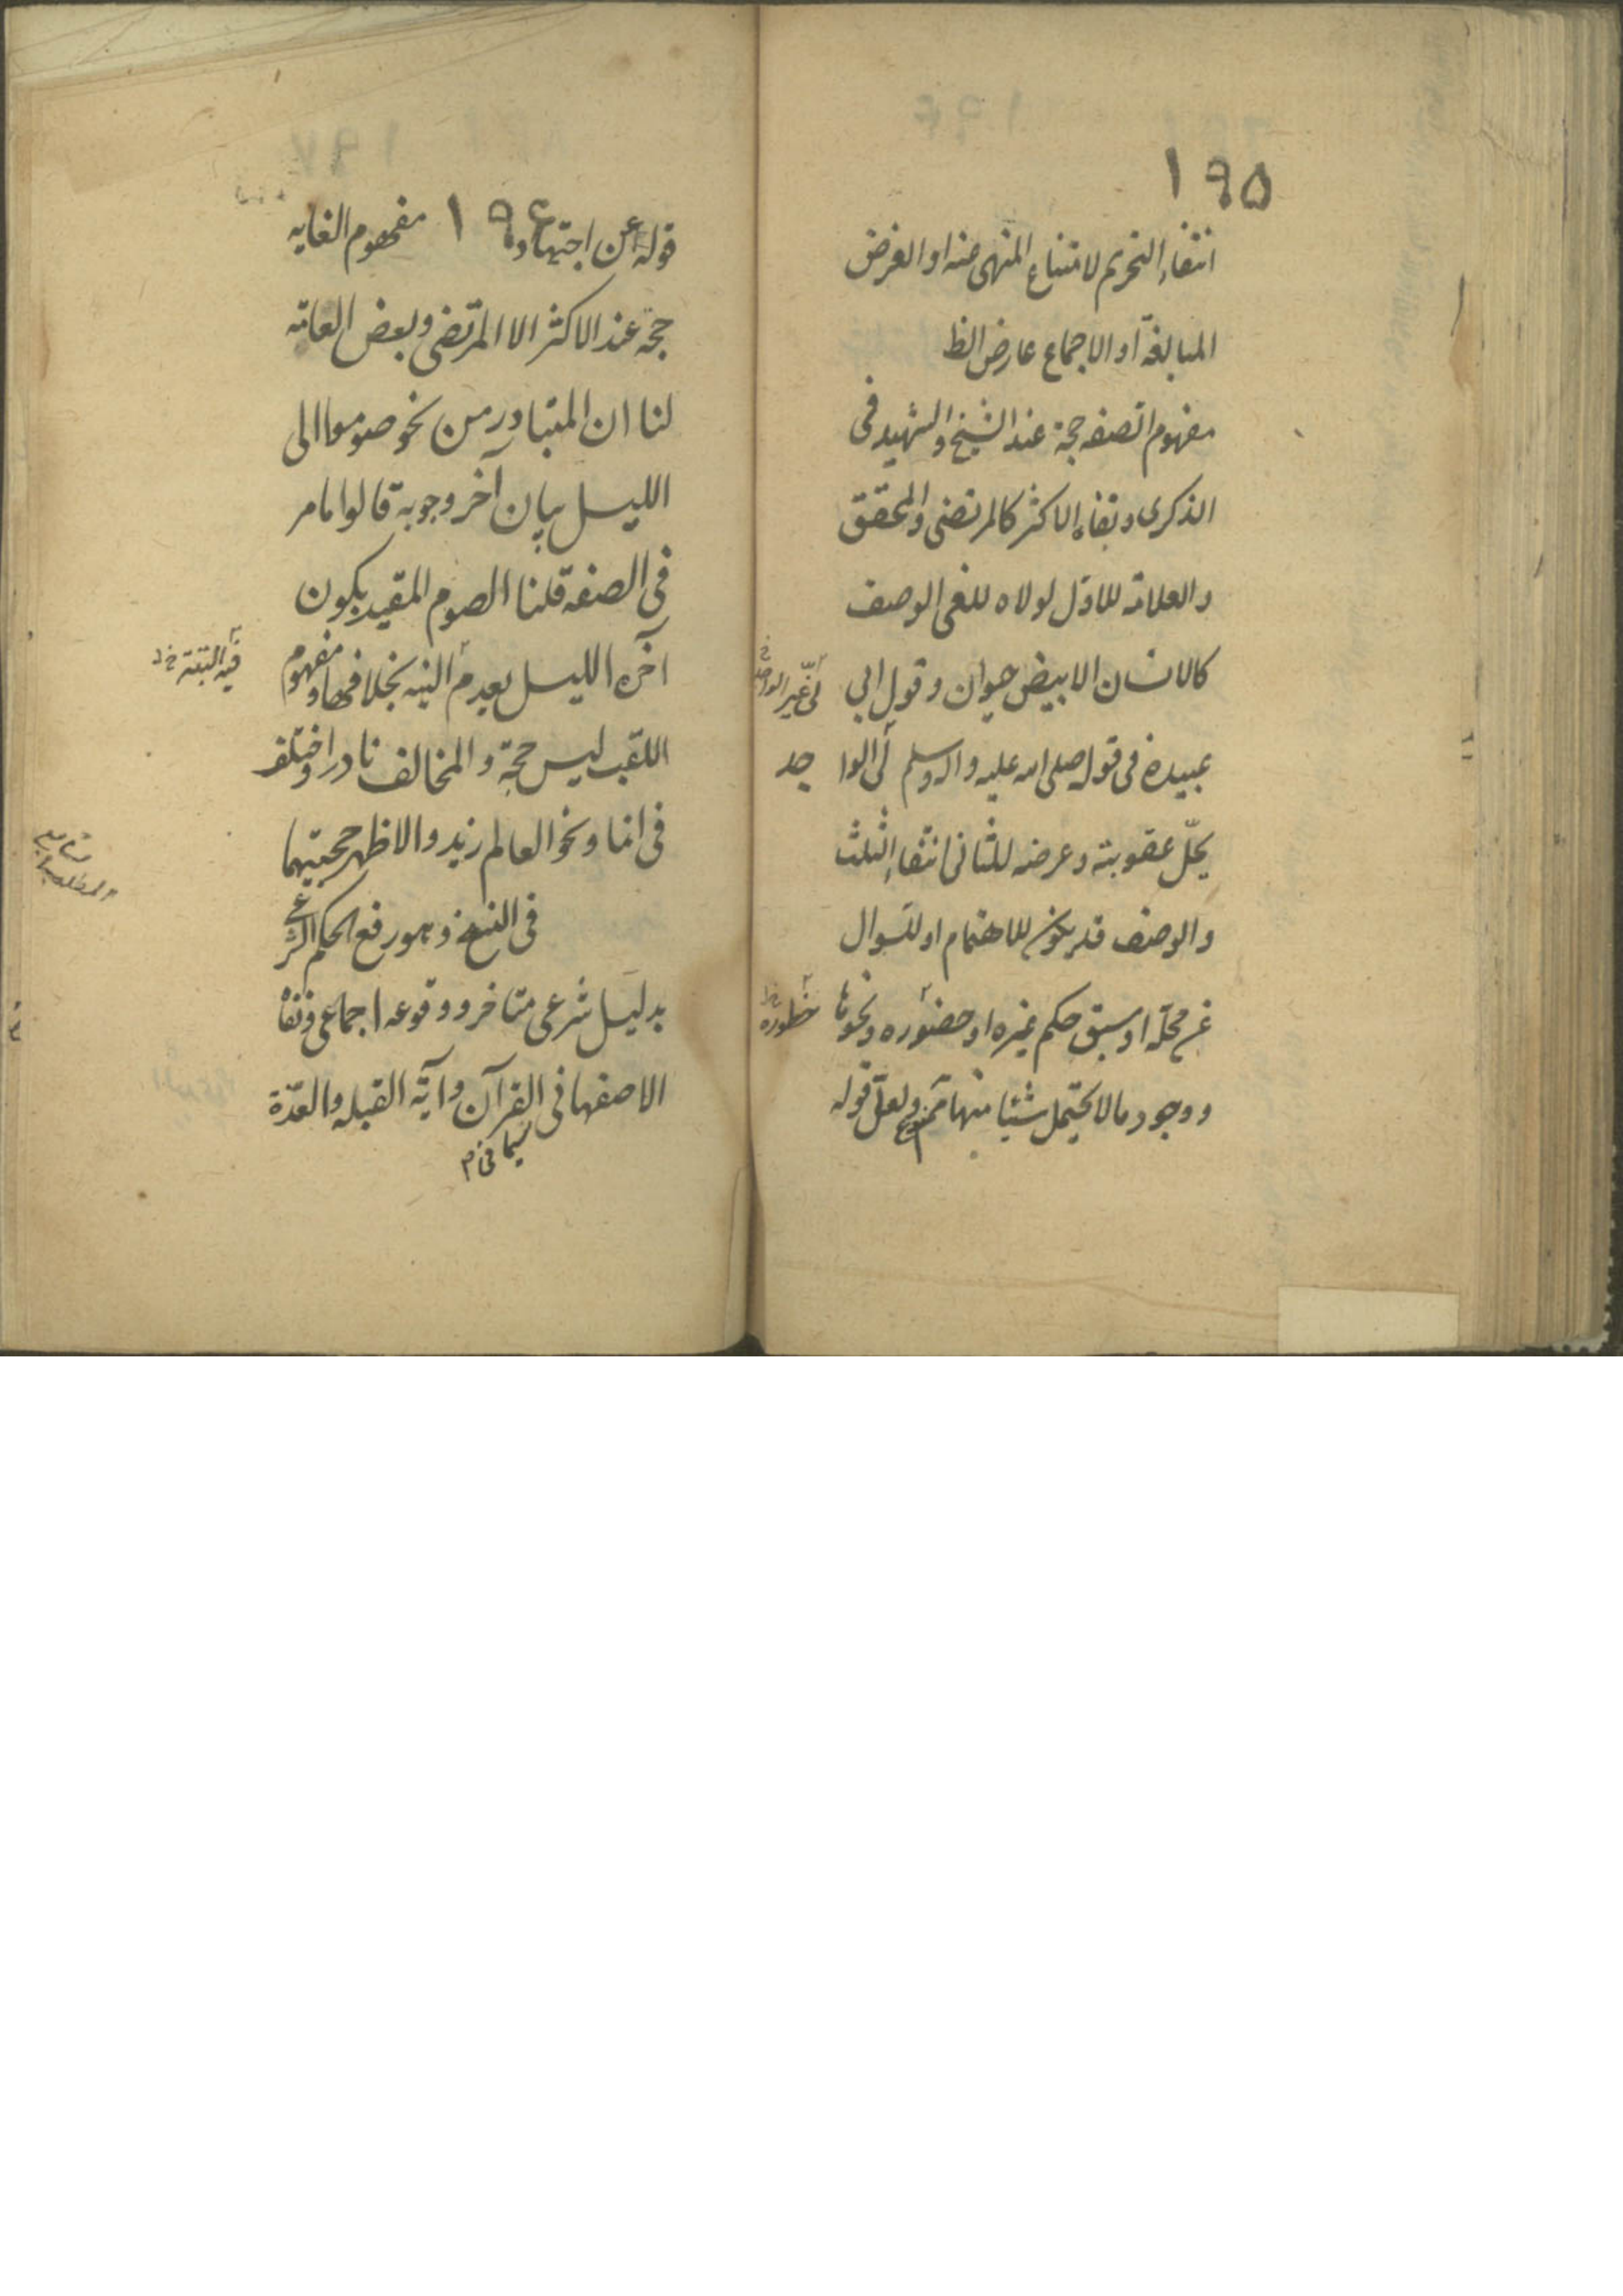 ١٩٥
انتفاء التحريم لامتناع المنهى عنه او الغرض
المبالغة او الاجماع عارض الظ
مفهوم الصفه حجة عند الشيخ والشهيد فى
الذكرى ونفاه الاكثر كالمرتضى والمحقق
والعلامه للاول لولاه للغى الوصف
كالانسان الابيض حيوان وقول ابى
عبيدة فى قوله صلى الله عليه واله وسلم لى الواجد
يحلّ عقوبته وعرضه للثانى انتفاء الثلث
والوصف قد يكون للاهتمام او لسوال
عن محلّه او سبق حكم غيره او حضوره ونحوها
ووجود مالا يحتمل شيئا منها ممنوع ولعل قوله
لى غير الواجد
خطوره
١٩٦
قوله عن اجتهاد مفهوم الغايه
حجه عند الاكثر الا المرتضى وبعض العامه
لنا ان المتبادر من نحو صوموا الى
الليل بيان آخر وجوبه قالوا مامر
فى الصفه قلنا الصوم المقيد بكون
آخره الليل يعدم البته بخلافها ومفهوم
اللقب ليس حجة والمخالف نادر واختلف
فى انما ونحو العالم زيد والاظهر حجيتهما
فى النسخ وهو رفع الحكم الشرعى
بدليل شرعى متاخر ووقوعه اجماعى ونفاه
الاصفهانى فى القرآن وآية القبله والعدّة
فيه البتة خ